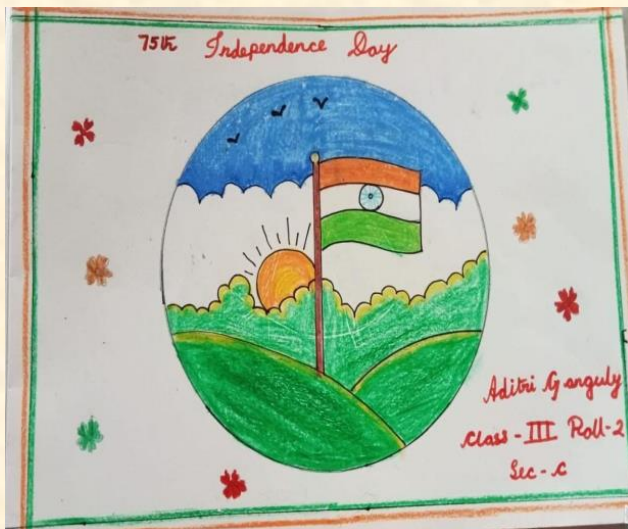 75th Independence Day
Aditri Ganguly
Class - III Roll - 2
Sec - C